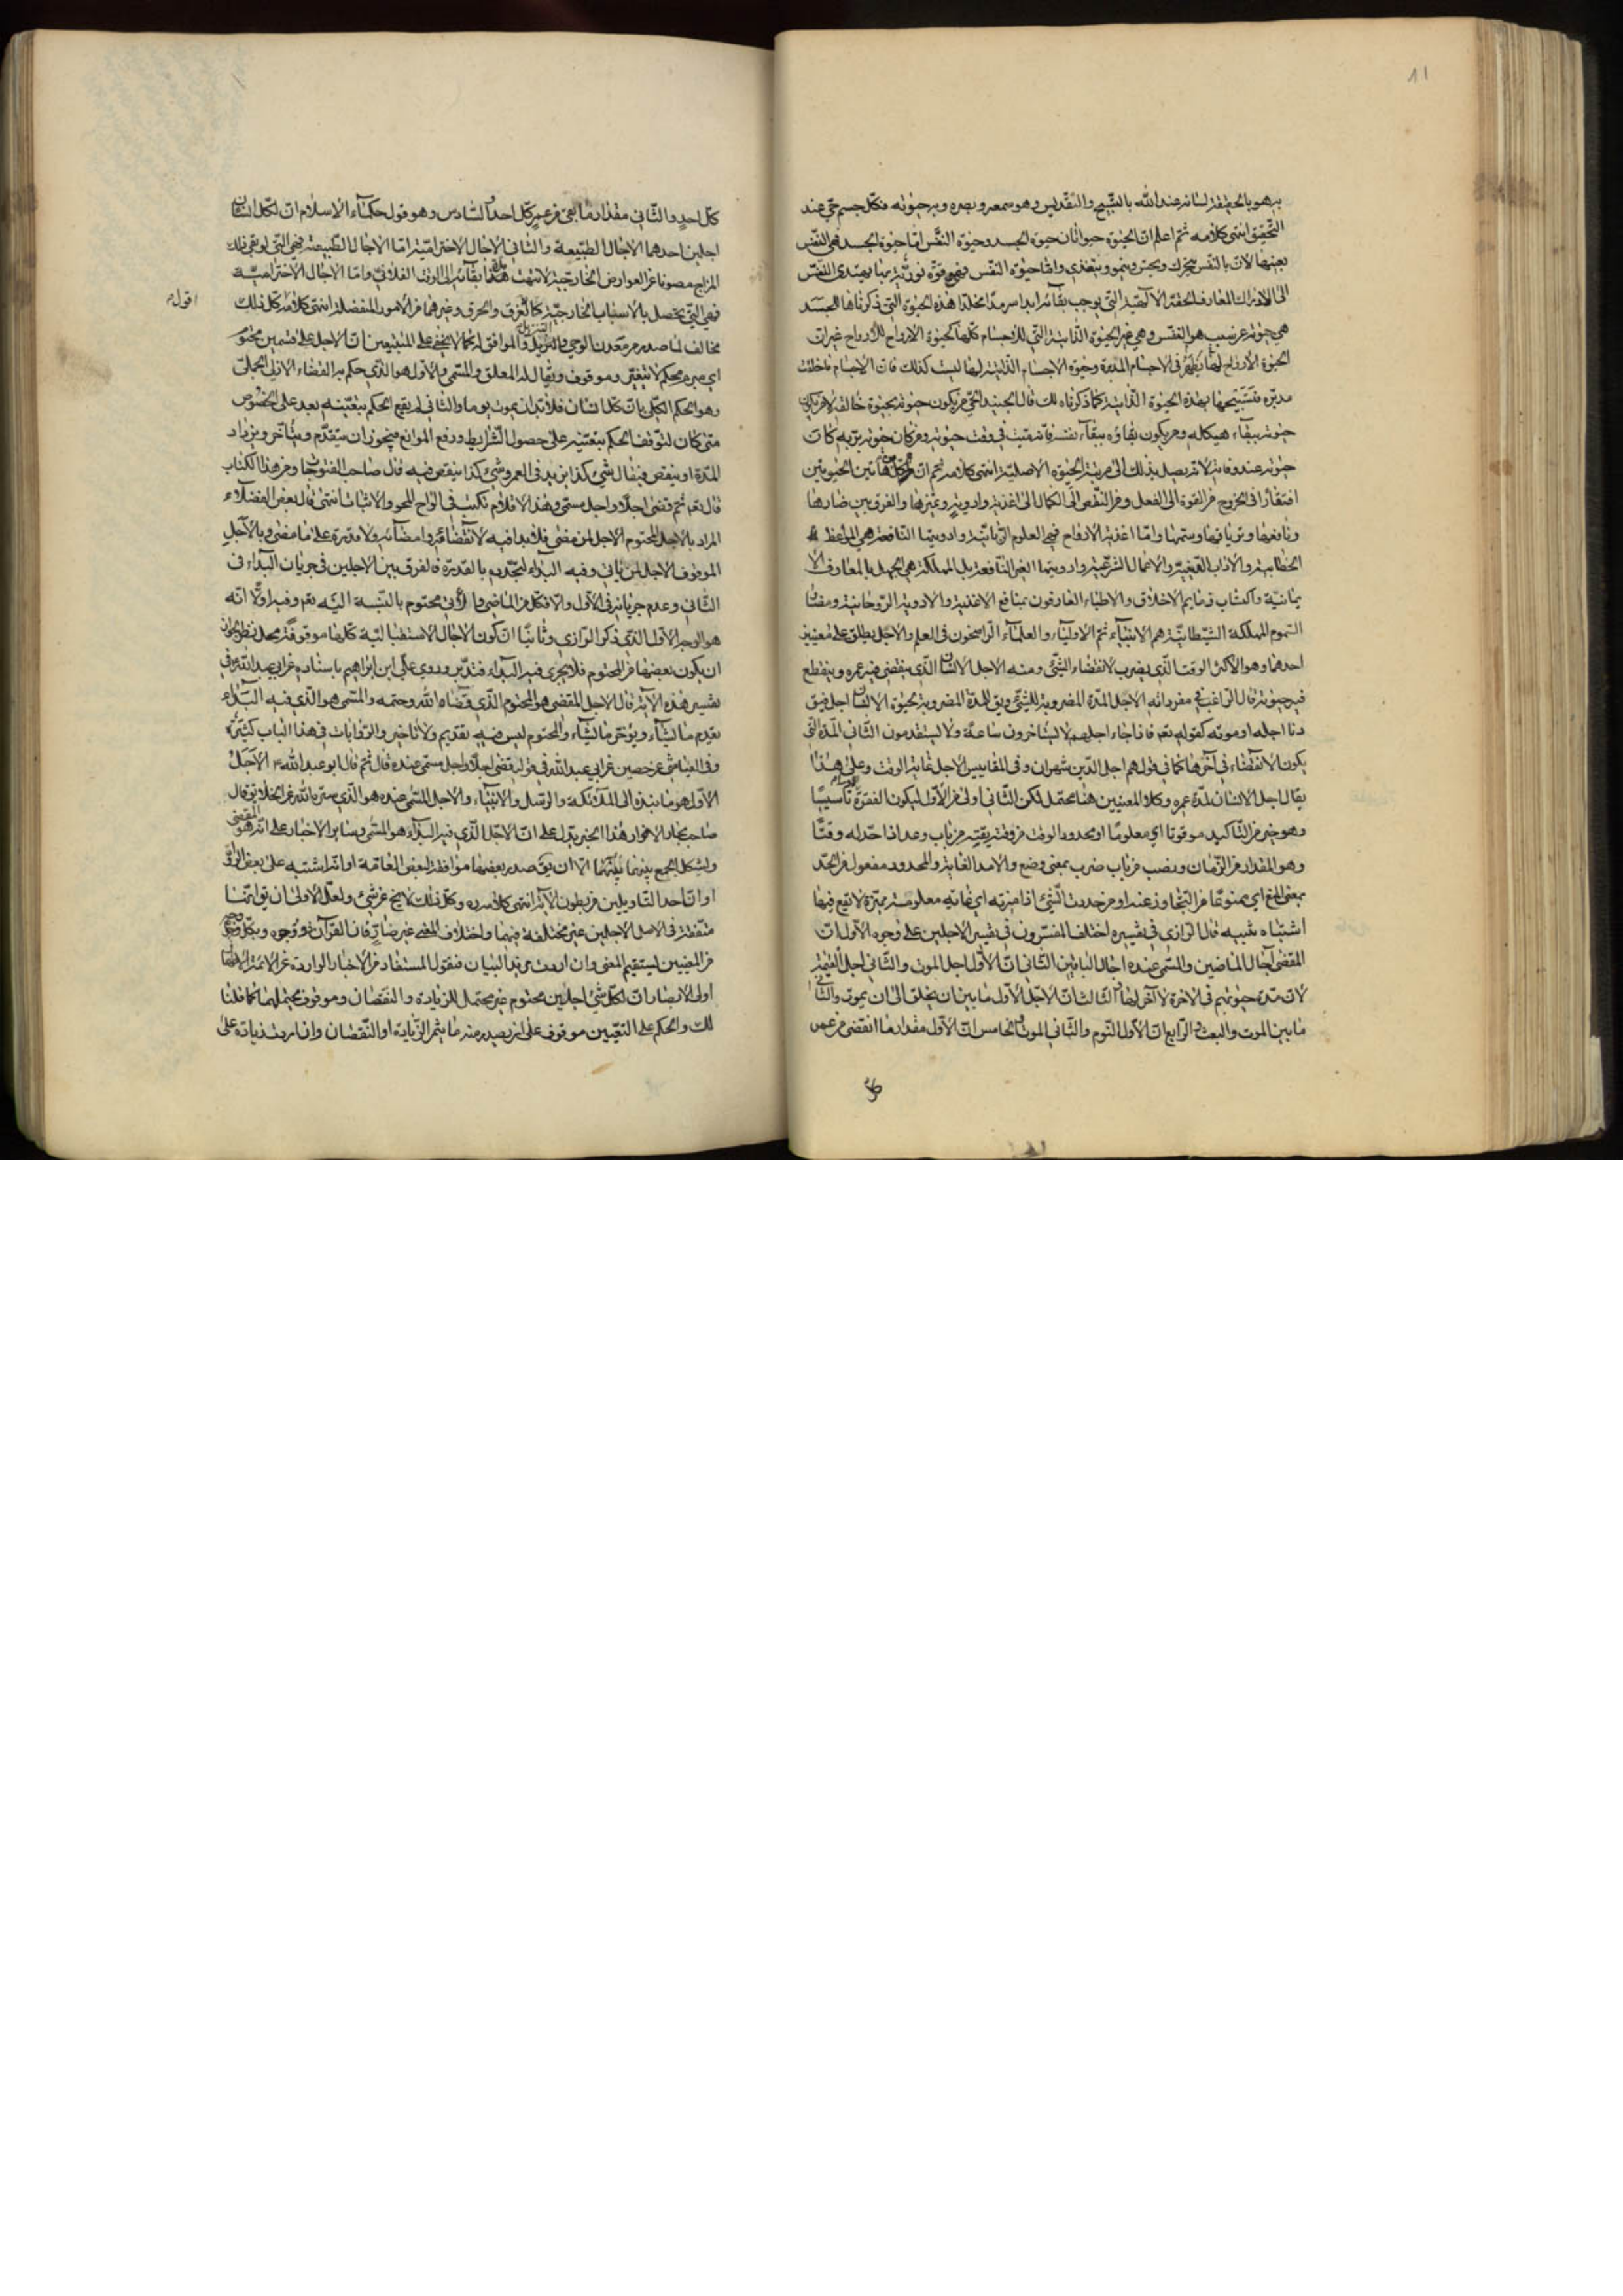 11
به هو بالحقيقة لسانه عند الله بالتسبيح والتقديس وهو سمعه وبصره وبه حيوته فكل جسم حي عند
التحقيق انتهى كلامه ثم اعلم ان الحيوة حيواتان حيوة الجسد وحيوة النفس اما حيوة الجسد فهي النفس
بعينها لان بالنفس يتحرك ويحس وينمو ويتغذى واما حيوة النفس فهي قوة نورية بها يهتدى النفس
الى الادراك المعارف الحقة الالهية التي يوجب بقائه ابدا سرمدا مخلدا هذه الحيوة التي ذكرناها للجسد
هي حيوة عن سبب هو النفس وهي غير الحيوة الذاتية التي للاجسام كلها كحيوة الارواح للارواح غير ان
الحيوة الارواح لها يظهر في الاجسام المدبرة وحيوة الاجسام الذاتية لها ليست كذلك فان الاجسام ما خلقت
مدبرة فتسبيحها بهذه الحيوة الذاتية كما ذكرناه لك قال الجنيد الحي من يكون حيوته بحيوة خالقه لا من يكون
حيوته ببقاء هيكله ومن يكون بقاؤه ببقاء نفسه فانه ميت في وقت حيوته ومن كان حيوته بربه كان
حيوته عند وفاته لانه يصل بذلك الى مرتبة الحيوة الاصلية انتهى كلامه ثم ان لكل من هاتين الحيوتين
افتقارا في الخروج من القوة الى الفعل ومن النقص الى الكمال الى اغذية وادوية وغيرها والفرق بين ضارها
ونافعها وترياقها وسمها واما اغذية الارواح فهي العلوم الربانية وادويتها النافعة هي المواعظ
الخطابية والاداب والاعمال الشرعية وادويتها الغير النافعة بل المهلكة هي الجهل بالمعارف الا
يمانية واكتساب ذمايم الاخلاق والاطباء العارفون بمنافع الاغذية والادوية الروحانية ومضار
السموم المهلكة الشيطانية هم الانبياء ثم الاولياء والعلماء الراسخون في العلم والاجل يطلق على معنيين
احدهما وهو الاكثر الوقت الذي يضرب لانقضاء الشيء ومنه الاجل الانسان الذي ينقضي فيه عمره وينقطع
فيه حيوته قال الراغب في مفرداته الاجل المدة المضروبة للشيء ويق للمدة المضروبة لحيوة الانسان اجل فيق
دنا اجله او موته كقوله تعم فاذا جاء اجلهم لا يستاخرون ساعة ولا يستقدمون الثاني المدة التي
يكون الانقضاء في آخرها كما في قولهم اجل الدين شهران وفي المقاييس الاجل غاية الوقت وعلى هذا
يقال اجل الانسان لمدة عمره وكلا المعنيين هنا محتمل لكن الثاني اولى من الاول ليكون الفقرة تاسيسا
وهو خير من التاكيد موقوتا اي معلوما او محدود الوقت من وقته يقته من باب وعد اذا حد له وقتا
وهو المقدار من الزمان ونصب من باب ضرب بمعنى وضع والامد الغاية والمحدود مفعول من الحد
بمعنى المنع اي ممنوعا من التجاوز عنه او من حددت الشيء اذا ميزته اي غاية معلومة مميزة لا تقع فيها
اشتباه شبيه قال الرازي في تفسيره اختلف المفسرون في تفسير الاجلين على وجوه الاول ان
المقضي آجال الماضين والمسمى عنده اجال الباقين الثاني ان الاول اجل الموت والثاني اجل القيمة
لان مدة حيوتهم في الاخرة لا آخر لها الثالث ان الاجل الاول ما بين ان يخلق الى ان يموت والثاني
ما بين الموت والبعث الرابع ان الاول النوم والثاني الموت الخامس ان الاول مقدار ما انقضى من عمر
كل
كل احد والثاني مقدار ما بقي من عمر كل احد السادس وهو قول حكماء الاسلام ان لكل انسان
اجلين احدهما الاجال الطبيعية والثاني الاجال الاخترامية اما الاجال الطبيعية فهي التي لو بقي ذلك
المزاج مصونا عن العوارض الخارجية لانتهت مدة بقائه الى الوقت الفلاني واما الاجال الاخترامية
فهي التي يحصل بالاسباب الخارجية كالغرق والحرق وغيرهما من الامور المنفصلة انتهى كلامه كل ذلك
اقول
مخالف لما صدر من معدن الوحي والتنزيل والموافق له كما لا يخفى على المتتبعين ان الاجل على قسمين محتوم
اي مبرم محكم لا يتغير وموقوف ويقال له المعلق والمسمى والاول هو الذي حكم به القضاء الازلي الجملي
وهو الحكم الكلي بان كل انسان فلا بد ان يموت يوما والثاني لم يقع الحكم بتعينه بعد على الخصوص
متى كان لتوقف الحكم بتعينه على حصول الشرايط ورفع الموانع فيجوز ان يتقدم ويتاخر ويزداد
المدة او ينقص فيقال شيء كذا يزيد في العمر وشيء كذا ينقص فيه قال صاحب الفتوحات ومن هذا الكتاب
قال تعم ثم قضى اجلا واجل مسمى وهذه الاقلام تكتب في الواح المحو والاثبات انتهى قال بعض الفضلاء
المراد بالاجل المحتوم الاجل لمن مضى فلا بدا فيه لانقضائه وامضائه ولا قدرة على ما مضى وبالاجل
الموقوف الاجل لمن ياتي وفيه البداء لتجدده بالقدرة فالفرق بين الاجلين في جريان البداء في
الثاني وعدم جريانه في الاول والا فكل من الماضي والاتي محتوم بالنسبة اليه تعم وفيه اولا انه
هو الوجه الاول الذي ذكره الرازي وثانيا ان كون الاجال الاستقبالية كلها موقوفة محل نظر لجواز
ان يكون بعضها من المحتوم فلا يجري فيه البداء فتدبر وروى علي ابن ابراهيم باسناده عن ابي عبد الله في
تفسير هذه الآية قال الاجل المقضي هو المحتوم الذي قضاه الله وحتمه والمسمى هو الذي فيه البداء
يقدم ما يشاء ويؤخر ما يشاء والمحتوم ليس فيه تقديم ولا تاخير والروايات في هذا الباب كثيرة
وفي العياشي عن حصين عن ابي عبد الله في قوله قضى اجلا واجل مسمى عنده قال ثم قال ابو عبد الله ع الاجل
الاول هو ما نبذه الى الملائكة والرسل والانبياء والاجل المسمى عنده هو الذي ستره الله عن الخلايق قال
صاحب بحار الانوار هذا الخبر يدل على ان الاجل الذي فيه البداء هو المسمى وساير الاخبار على انه هو المقضي
ويشكل الجمع بينهما الا ان يق صدر بعضها موافقا لبعض العامة او انه اشتبه على بعض الرواة
او ان احد التاويلين من بطون الآية انتهى كلامه وكل ذلك لا يخ عن شيء ولعل الاولى ان يق انها
متفقة في الاصل الاجلين غير مختلفة فيهما واختلاف المعنى غير ضار فان القرآن ذو وجوه وبكل وجه
من المعنيين يستقيم المعنى وان اردت من يد البيان فنقول المستفاد من الاخبار الواردة عن الائمة الاطهار
اولى الابصار ان لكل شيء اجلين محتوم غير محتمل للزيادة والنقصان وموقوف محتمل لهما كما قلنا
لك والحكم على التعيين موقوف على ان يصدر منه ما يثمر الزيادة او النقصان وان اردت زيادة على